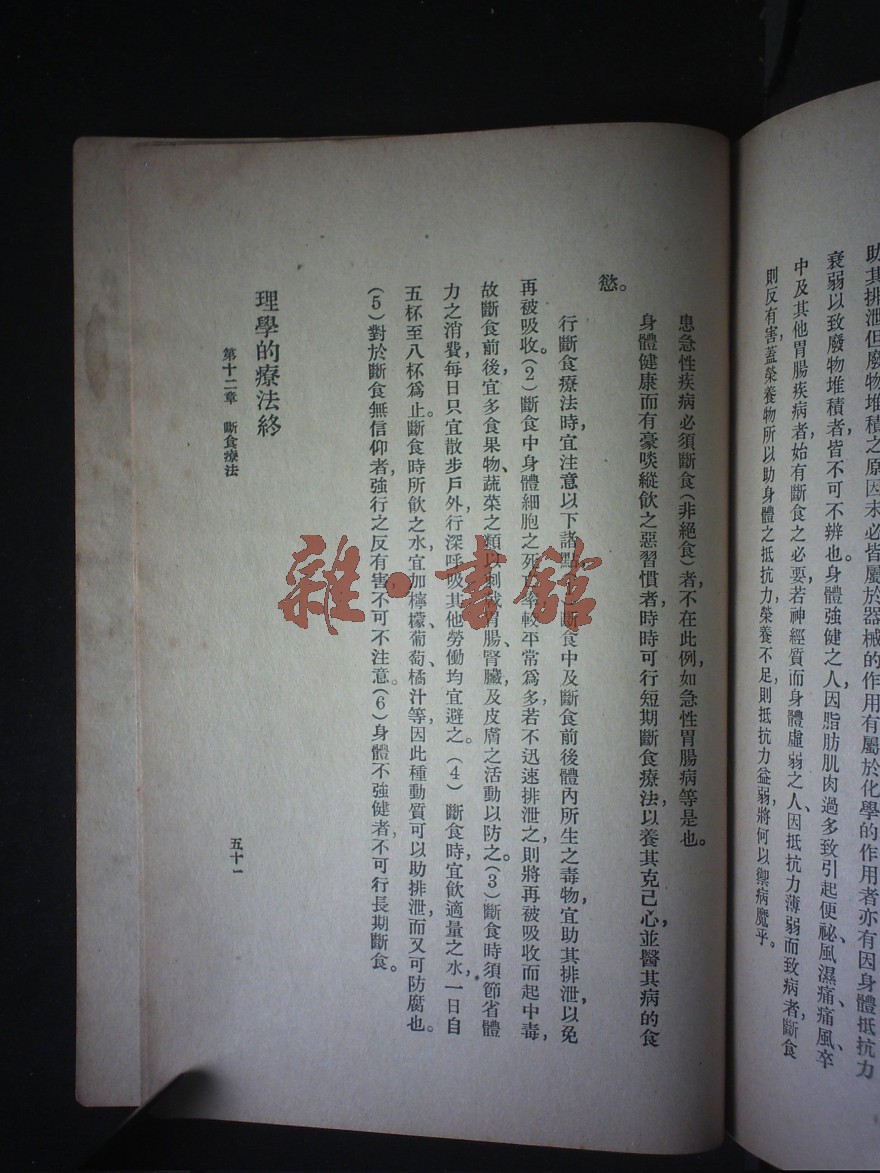 助其排泄但廢物堆積之原因未必皆屬於器械的作用有屬於化學的作用者亦有因身體抵抗力
衰弱以致廢物堆積者皆不可不辨也。身體強健之人因脂肪肌肉過多致引起便祕、風濕痛、痛風、卒
中及其他胃腸疾病者，始有斷食之必要若神經質而身體虛弱之人、因抵抗力薄弱而致病者，斷食
則反有害，蓋榮養物所以助身體之抵抗力，榮養不足，則抵抗力益弱，將何以禦病魔乎。
患急性疾病必須斷食(非絕食)者，不在此例，如急性胃腸病等是也。
身體健康而有豪啖縱飲之惡習慣者，時時可行短期斷食療法，以養其克己心，並醫其病的食
慾。
行斷食療法時，宜注意以下諸點斷食中及斷食前後，體內所生之毒物，宜助其排泄，以免
再被吸收。(2)斷食中身體細胞之死較平常爲多，若不迅速排泄之，則將再被吸收而起中毒，
故斷食前後，宜多食果物、蔬菜之類，以胃腸、腎臟、及皮膚之活動以防之。(3)斷食時須節省體
力之消費，每日只宜散步戶外，行深呼吸，其他勞働均宜避之。(4)斷食時，宜飲適量之水，一日自
五杯至八杯爲止。斷食時所飲之水，宜加檸檬、葡萄、橘汁等，因此種動質可以助排泄，而又可防腐也。
(5)對於斷食無信仰者，強行之反有害，不可不注意。(6)身體不強健者，不可行長期斷食。
理學的療法終
第十二章　斷食療法
五十一
雜·書館